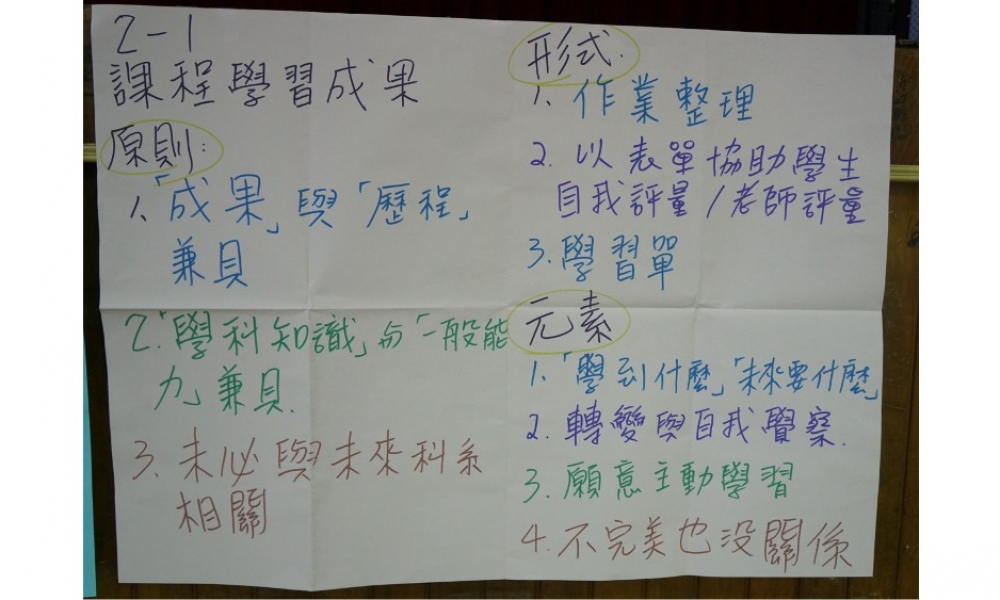 2-1
課程學習成果
原則:
1、「成果」與「歷程」
兼具
2.「學科知識」與「一般能
力」兼具.
3. 未必與未來科系
相關
形式.
1、作業整理
2. 以表單協助學生
自我評量/老師評量
3. 學習單
元素
1.「學到什麼」「未來要什麼」
2. 轉變與自我覺察.
3. 願意主動學習
4. 不完美也沒關係